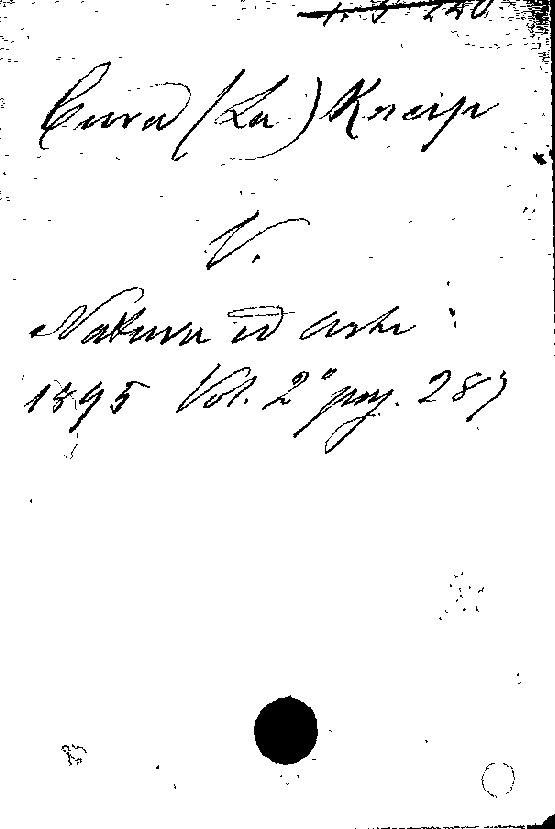 Cura (La) Kneip
V.
Natura ed Arte
1895 Vol. 2° pag. 287